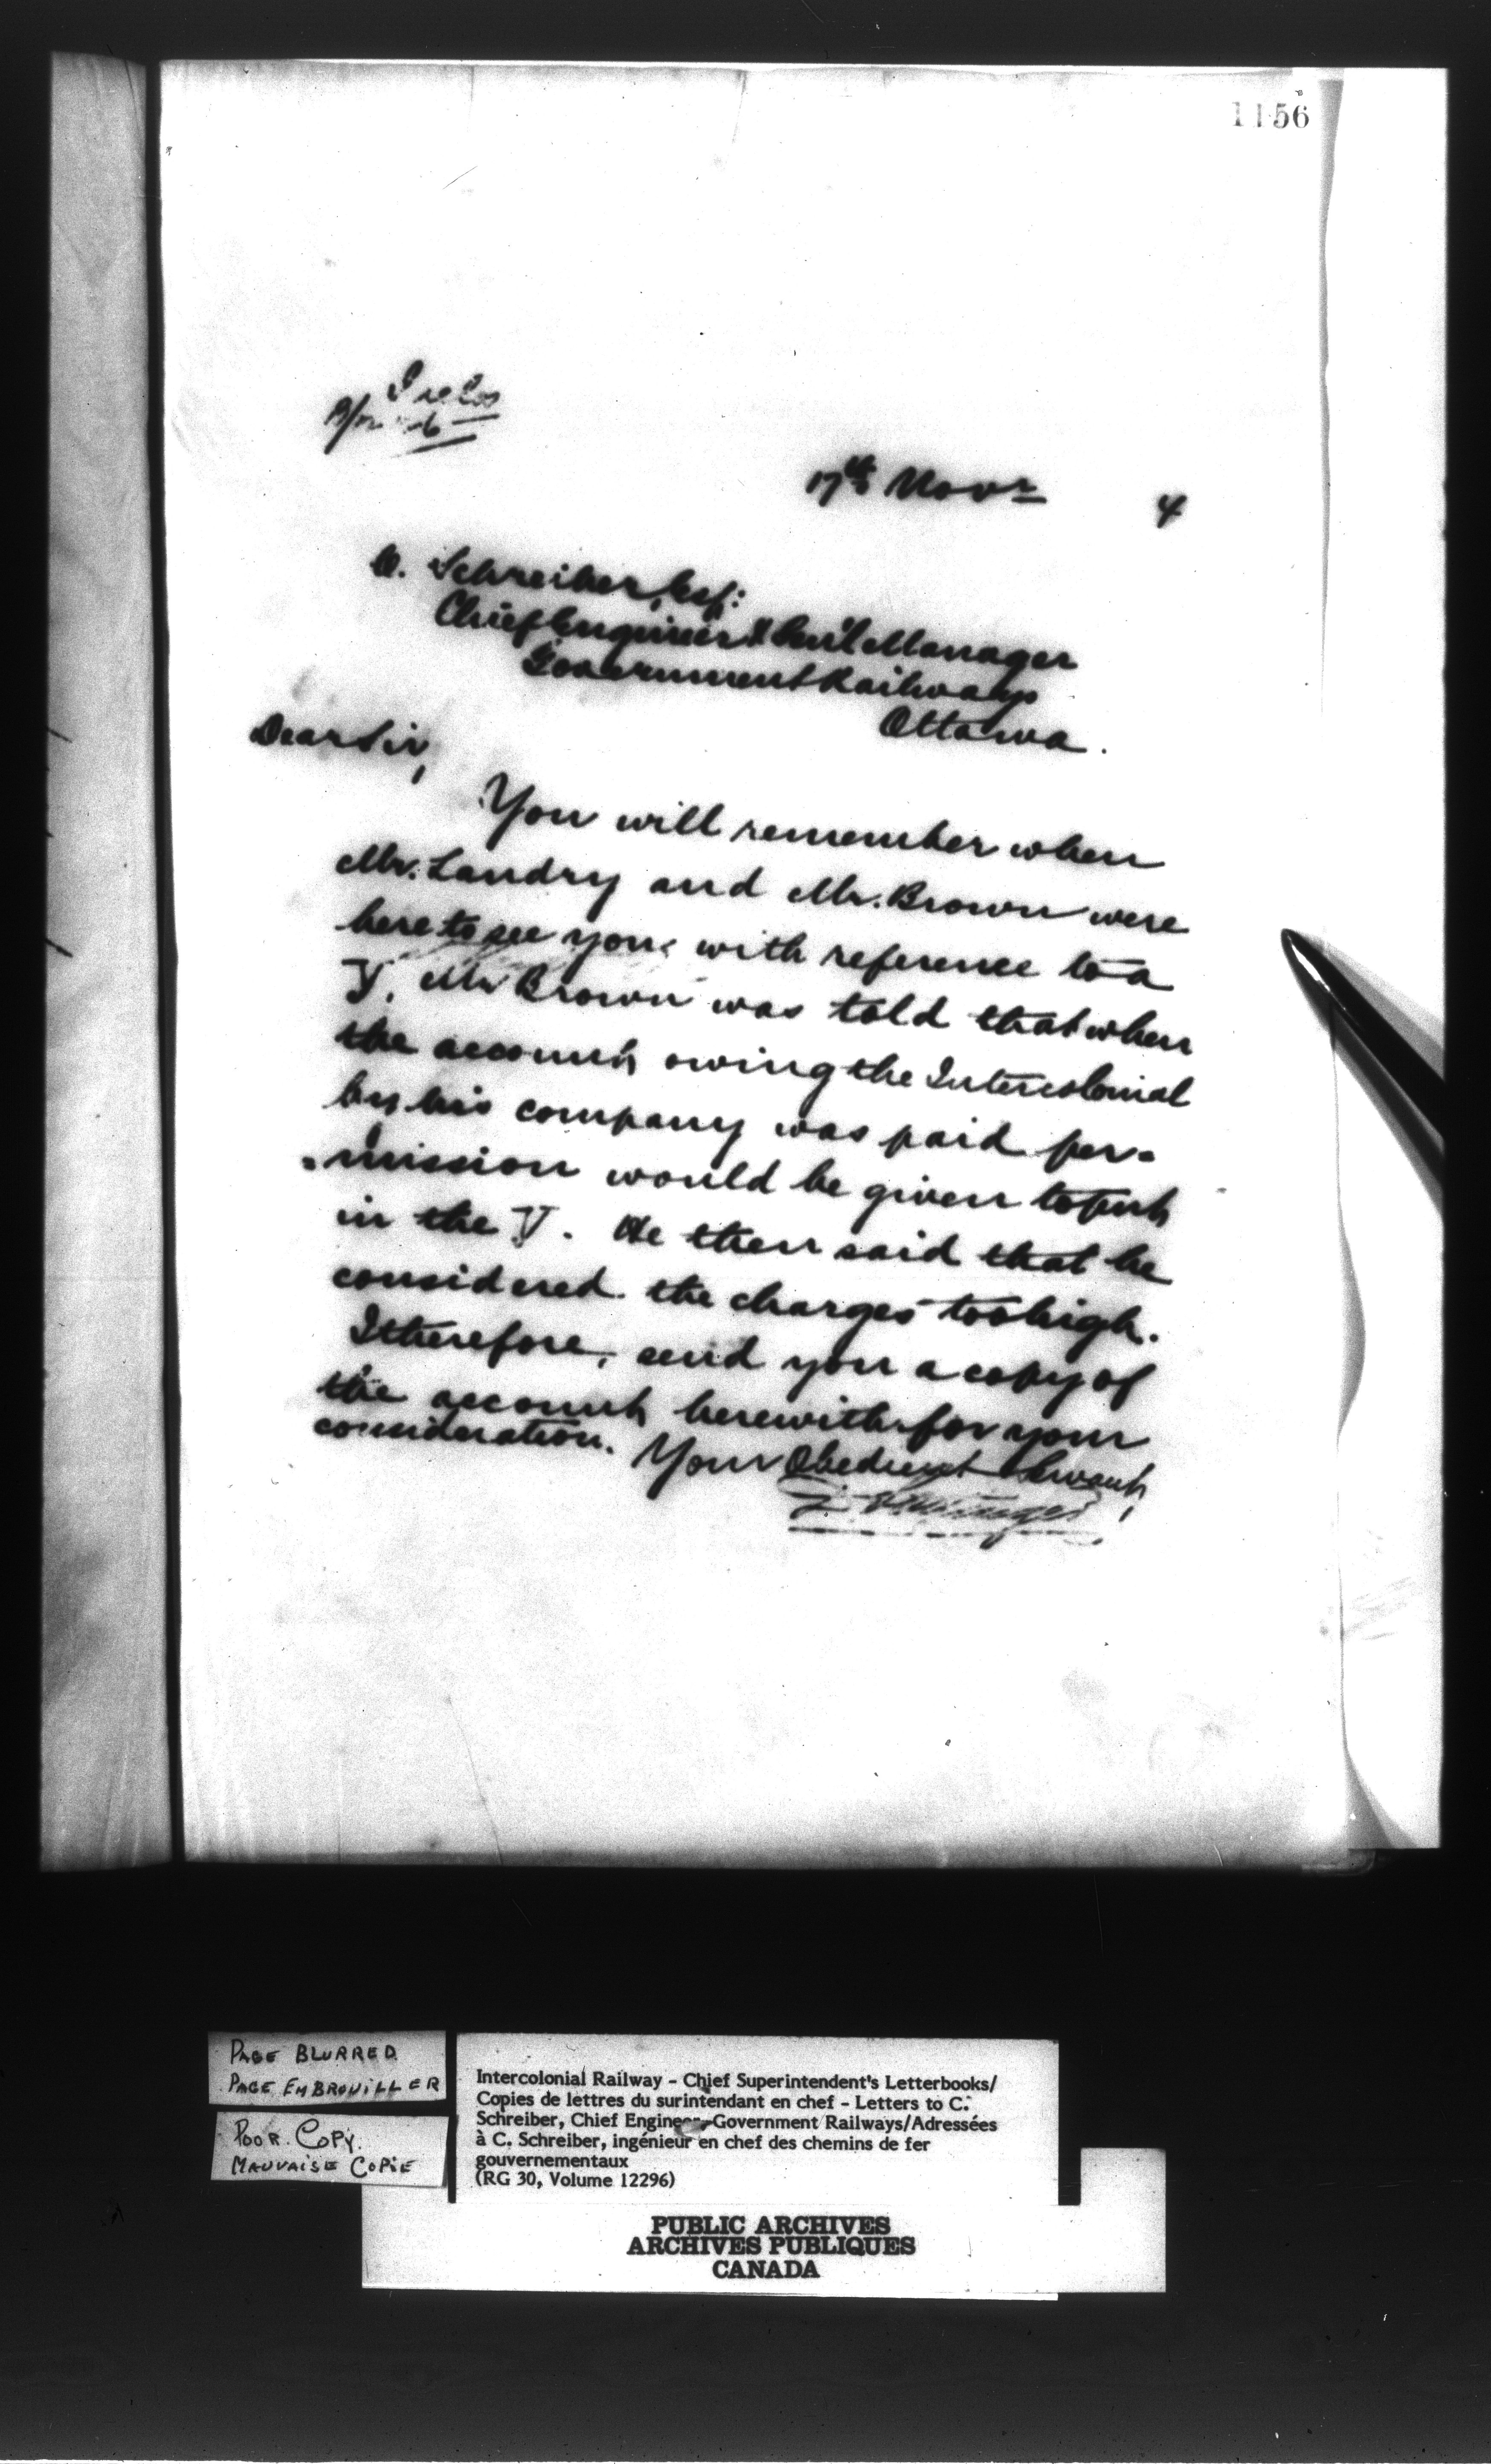 1156
17th Novr 4
C. Schreiber, Esq:
Chief Engineer & Gen'l Manager
Government Railways
Ottawa.
Dear Sir,
You will remember when
Mr. Landry and Mr. Brown were
here to see you, with reference to a
Y, Mr Brown was told that when
the account owing the Intercolonial
by his company was paid per-
-mission would be given to put
in the Y. He then said that he
considered the charges too high.
I therefore, send you a copy of
the account herewith for your
consideration. Your Obedient Servant,
D. Pottinger
PAGE BLURRED
PAGE EMBROUILLER
POOR COPY.
MAUVAISE COPIE
Intercolonial Railway - Chief Superintendent's Letterbooks/
Copies de lettres du surintendant en chef - Letters to C.
Schreiber, Chief Engineer-Government Railways/Adressées
à C. Schreiber, ingénieur en chef des chemins de fer
gouvernementaux
(RG 30, Volume 12296)
PUBLIC ARCHIVES
ARCHIVES PUBLIQUES
CANADA